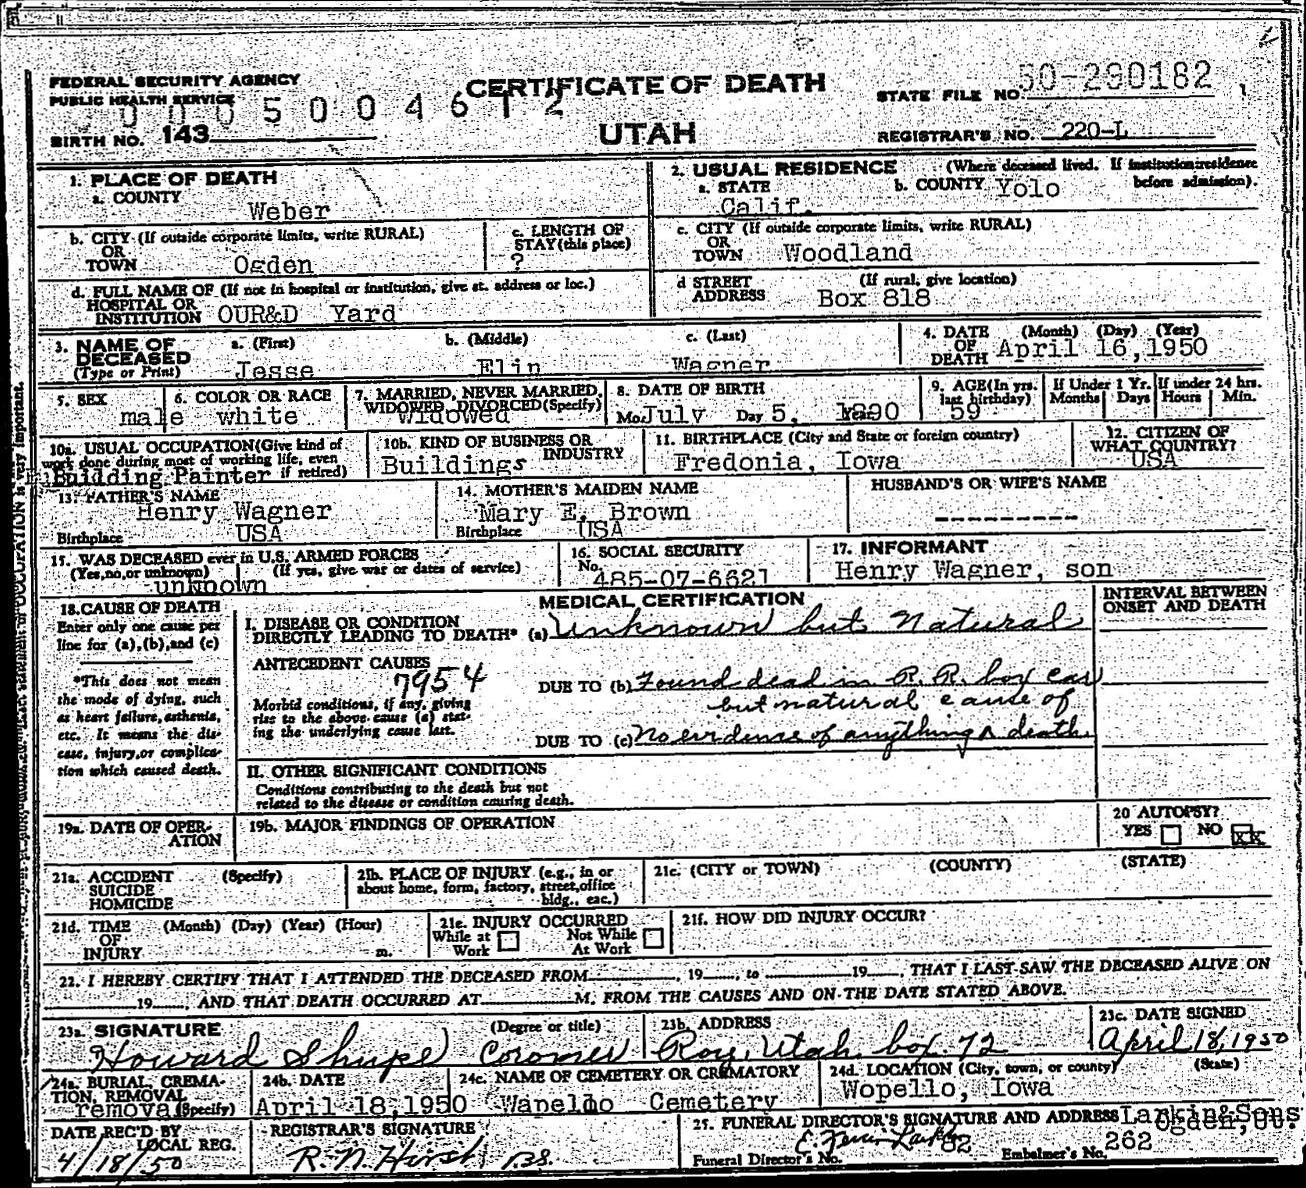 FEDERAL SECURITY AGENCY
PUBLIC HEALTH SERVICE
0 0 0 5 0 0 4 6 1 2
BIRTH NO. 143
CERTIFICATE OF DEATH
UTAH
STATE FILE NO. 50-290182
REGISTRAR'S NO. 220-L
1. PLACE OF DEATH
a. COUNTY
Weber
2. USUAL RESIDENCE (Where deceased lived. If institution: residence before admission).
a. STATE Calif. b. COUNTY Yolo
b. CITY (If outside corporate limits, write RURAL)
OR
TOWN Ogden
c. LENGTH OF
STAY (this place)
?
c. CITY (If outside corporate limits, write RURAL)
OR
TOWN Woodland
d. FULL NAME OF (If not in hospital or institution, give st. address or loc.)
HOSPITAL OR
INSTITUTION OUR&D Yard
d STREET (If rural, give location)
ADDRESS Box 818
3. NAME OF DECEASED (Type or Print)
a. (First) b. (Middle) c. (Last)
Jesse Elin Wagner
4. DATE (Month) (Day) (Year)
OF
DEATH April 16,1950
5. SEX
male
6. COLOR OR RACE
white
7. MARRIED, NEVER MARRIED,
WIDOWED, DIVORCED (Specify)
Widowed
8. DATE OF BIRTH
Mo. July Day 5, Year 1890
9. AGE (In yrs. last birthday)
59
If Under 1 Yr. Months Days
If under 24 hrs. Hours Min.
10a. USUAL OCCUPATION (Give kind of
work done during most of working life, even
if retired)
Building Painter
10b. KIND OF BUSINESS OR
INDUSTRY
Buildings
11. BIRTHPLACE (City and State or foreign country)
Fredonia, Iowa
12. CITIZEN OF
WHAT COUNTRY?
USA
13. FATHER'S NAME
Henry Wagner
Birthplace USA
14. MOTHER'S MAIDEN NAME
Mary E. Brown
Birthplace USA
HUSBAND'S OR WIFE'S NAME
---------
15. WAS DECEASED ever in U.S. ARMED FORCES
(Yes, no, or unknown) (If yes, give war or dates of service)
unknown
16. SOCIAL SECURITY
No.
485-07-6621
17. INFORMANT
Henry Wagner, son
18. CAUSE OF DEATH
Enter only one cause per
line for (a), (b), and (c)
*This does not mean
the mode of dying, such
as heart failure, asthenia,
etc. It means the dis-
ease, injury, or complica-
tion which caused death.
MEDICAL CERTIFICATION
INTERVAL BETWEEN
ONSET AND DEATH
I. DISEASE OR CONDITION
DIRECTLY LEADING TO DEATH* (a) Unknown but Natural
ANTECEDENT CAUSES
7954
Morbid conditions, if any, giving
rise to the above cause (a) stat-
ing the underlying cause last.
DUE TO (b) Found dead in R.R. box car
but natural cause of
DUE TO (c) No evidence of anything death.
II. OTHER SIGNIFICANT CONDITIONS
Conditions contributing to the death but not
related to the disease or condition causing death.
19a. DATE OF OPER-
ATION
19b. MAJOR FINDINGS OF OPERATION
20 AUTOPSY?
YES NO xx
21a. ACCIDENT (Specify)
SUICIDE
HOMICIDE
21b. PLACE OF INJURY (e.g., in or
about home, form, factory, street, office
bldg., etc.)
21c. (CITY or TOWN) (COUNTY) (STATE)
21d. TIME (Month) (Day) (Year) (Hour)
OF
INJURY m.
21e. INJURY OCCURRED
While at Work Not While At Work
21f. HOW DID INJURY OCCUR?
22. I HEREBY CERTIFY THAT I ATTENDED THE DECEASED FROM , 19 , to 19 , THAT I LAST SAW THE DECEASED ALIVE ON
19 , AND THAT DEATH OCCURRED AT M. FROM THE CAUSES AND ON THE DATE STATED ABOVE.
23a. SIGNATURE (Degree or title)
Howard Shupe Coroner
23b. ADDRESS
Roy, Utah. box. 72
23c. DATE SIGNED
April 18, 1950
24a. BURIAL, CREMA-
TION, REMOVAL
removal (Specify)
24b. DATE
April 18,1950
24c. NAME OF CEMETERY OR CREMATORY
Wapello Cemetery
24d. LOCATION (City, town, or county) (State)
Wopello, Iowa
DATE REC'D BY
LOCAL REG.
4/18/50
REGISTRAR'S SIGNATURE
R. N. Hirst
25. FUNERAL DIRECTOR'S SIGNATURE AND ADDRESS Larkin&Sons
Ogden, Ut.
Funeral Director's No. 82 Embalmer's No. 262